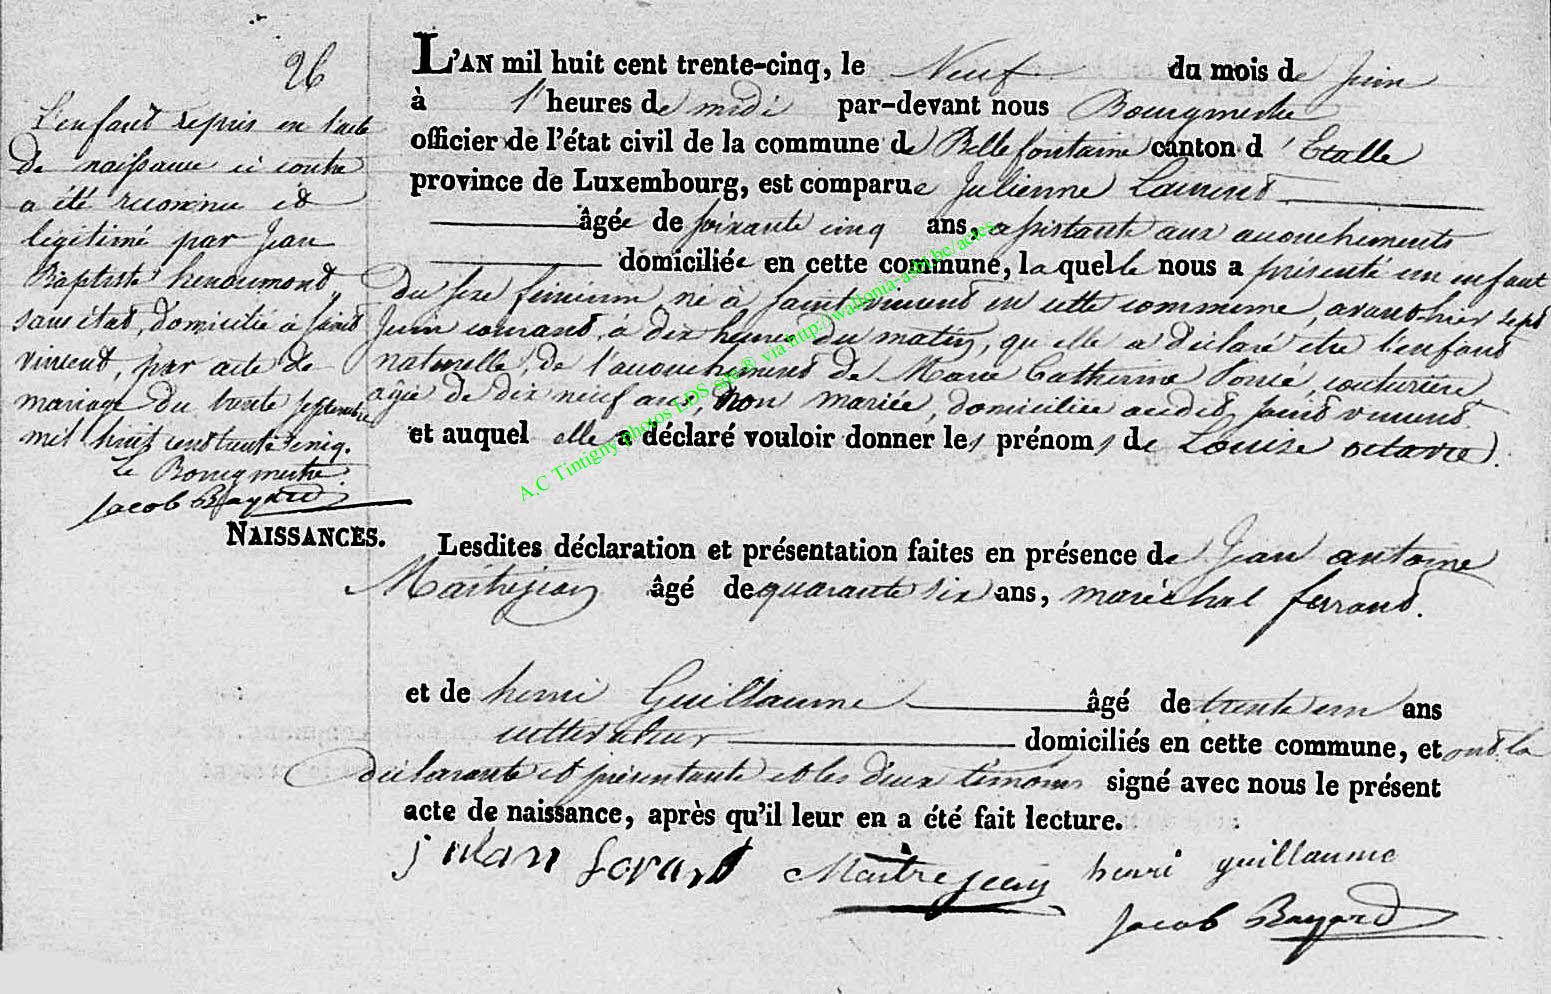 26
L'enfant repris en l'acte
de naissance ci contre
a été reconnu et
légitimé par Jean
Baptiste henoumont
sans état, domicilié à saint
vincent, par acte de
mariage du trente septembre
mil huit cent trente cinq.
Le Bourgmestre
Jacob Bayard
NAISSANCES.
L'AN mil huit cent trente-cinq, le Neuf du mois de Juin
à 1 heures de midi par-devant nous Bourgmestre
officier de l'état civil de la commune de Bellefontaine canton d'Etalle
province de Luxembourg, est comparue Julienne Laurent
âgée de soixante cinq ans, assistante aux accouchements
domiciliée en cette commune, laquelle nous a présenté un enfant
du sexe féminin, né à saint vincent en cette commune, avant hier sept
Juin courant, à dix heures du matin, qu'elle a déclaré être l'enfant
naturelle, de l'accouchement de Marie Catherine couturière,
âgée de dix neuf ans, non mariée, domiciliée audit saint vincent.
et auquel elle a déclaré vouloir donner les prénoms de Louise octavie.
Lesdites déclaration et présentation faites en présence de Jean antoine
Maitrejean âgé de quarante six ans, maréchal ferrant.
et de henri Guillaume âgé de trente un ans
cultivateur domiciliés en cette commune, et ont la
déclarante et présentante et les deux témoins signé avec nous le présent
acte de naissance, après qu'il leur en a été fait lecture.
Maitrejean henri guillaume
Jacob Bayard
A.C Tintigny photos LDS via http://wallonia-asbl.be/actes